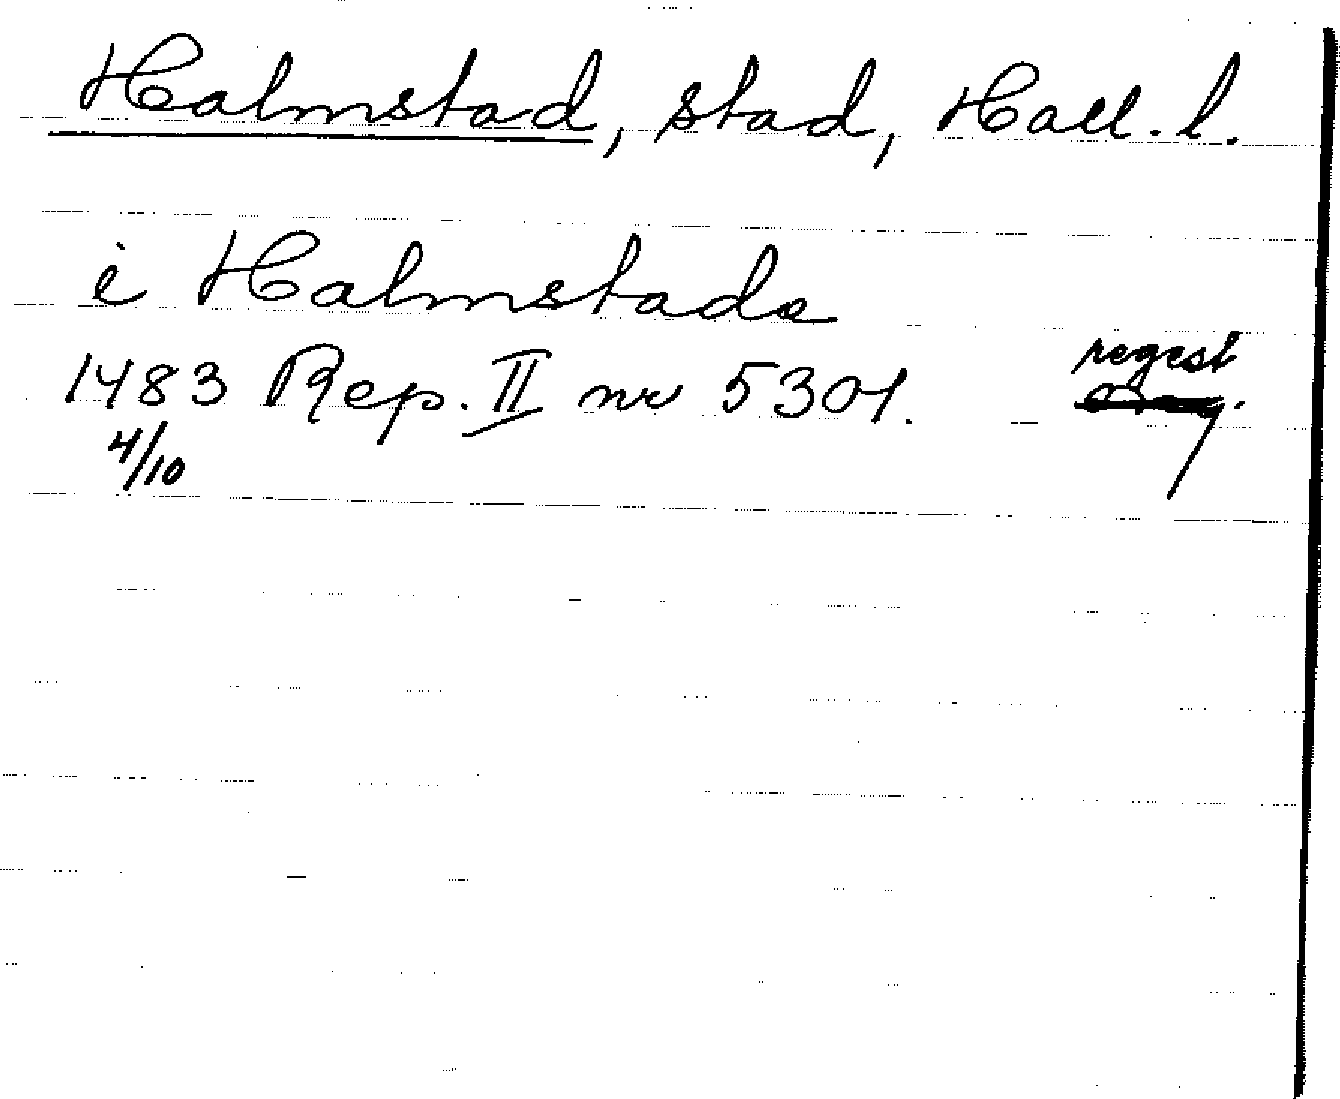 Halmstad, stad, Hall. l.
i Halmstada
1483 Rep. II nr 5301. regest
4/10